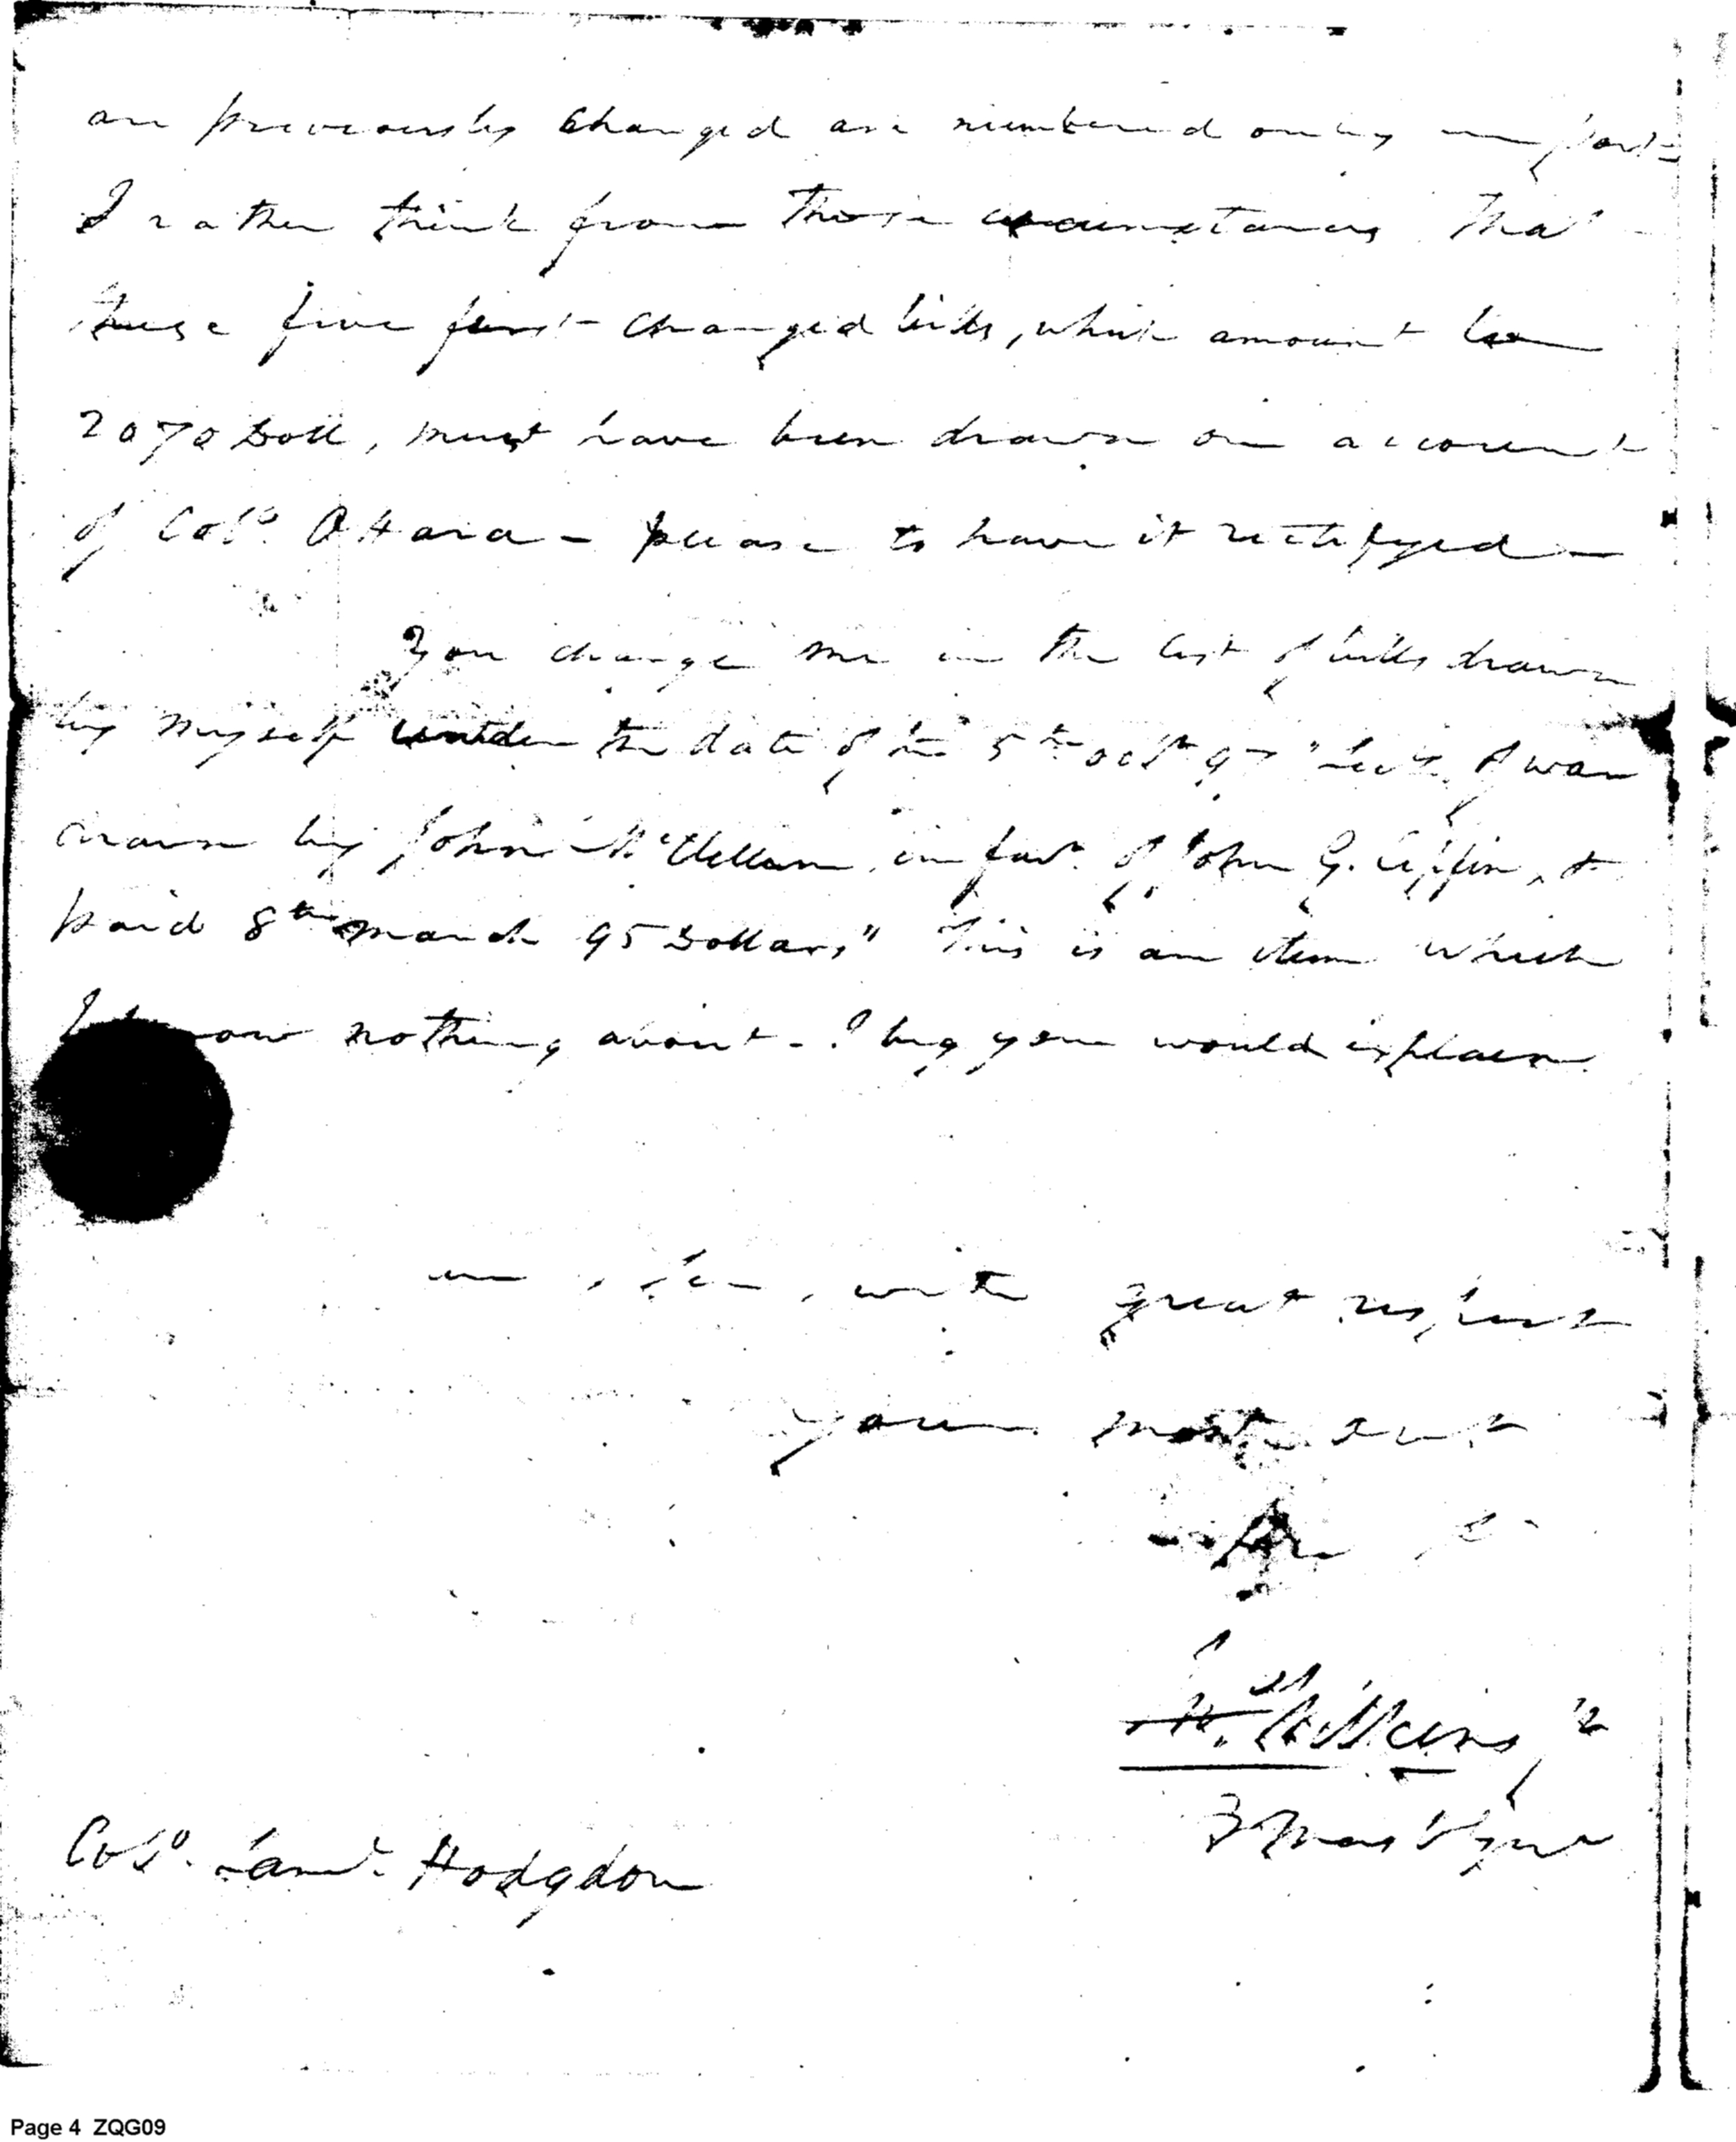 are previously charged are numbered only in part
I rather think from those circumstances that
these five first charged bills, which amount to
2070 Doll, must have been drawn on account
of Colo. O Hara - please to have it rectifyed -
You charge me in the list of bills drawn
by myself under the date of the 5th oct
drawn by John McClellan in favr. of John G.
paid 8th march 95 Dollars" This is an item which
I know nothing about - I beg you would explain
with great respect
your most
Wilkins, Jr
Colo. Saml. Hodgdon
Page 4 ZQG09